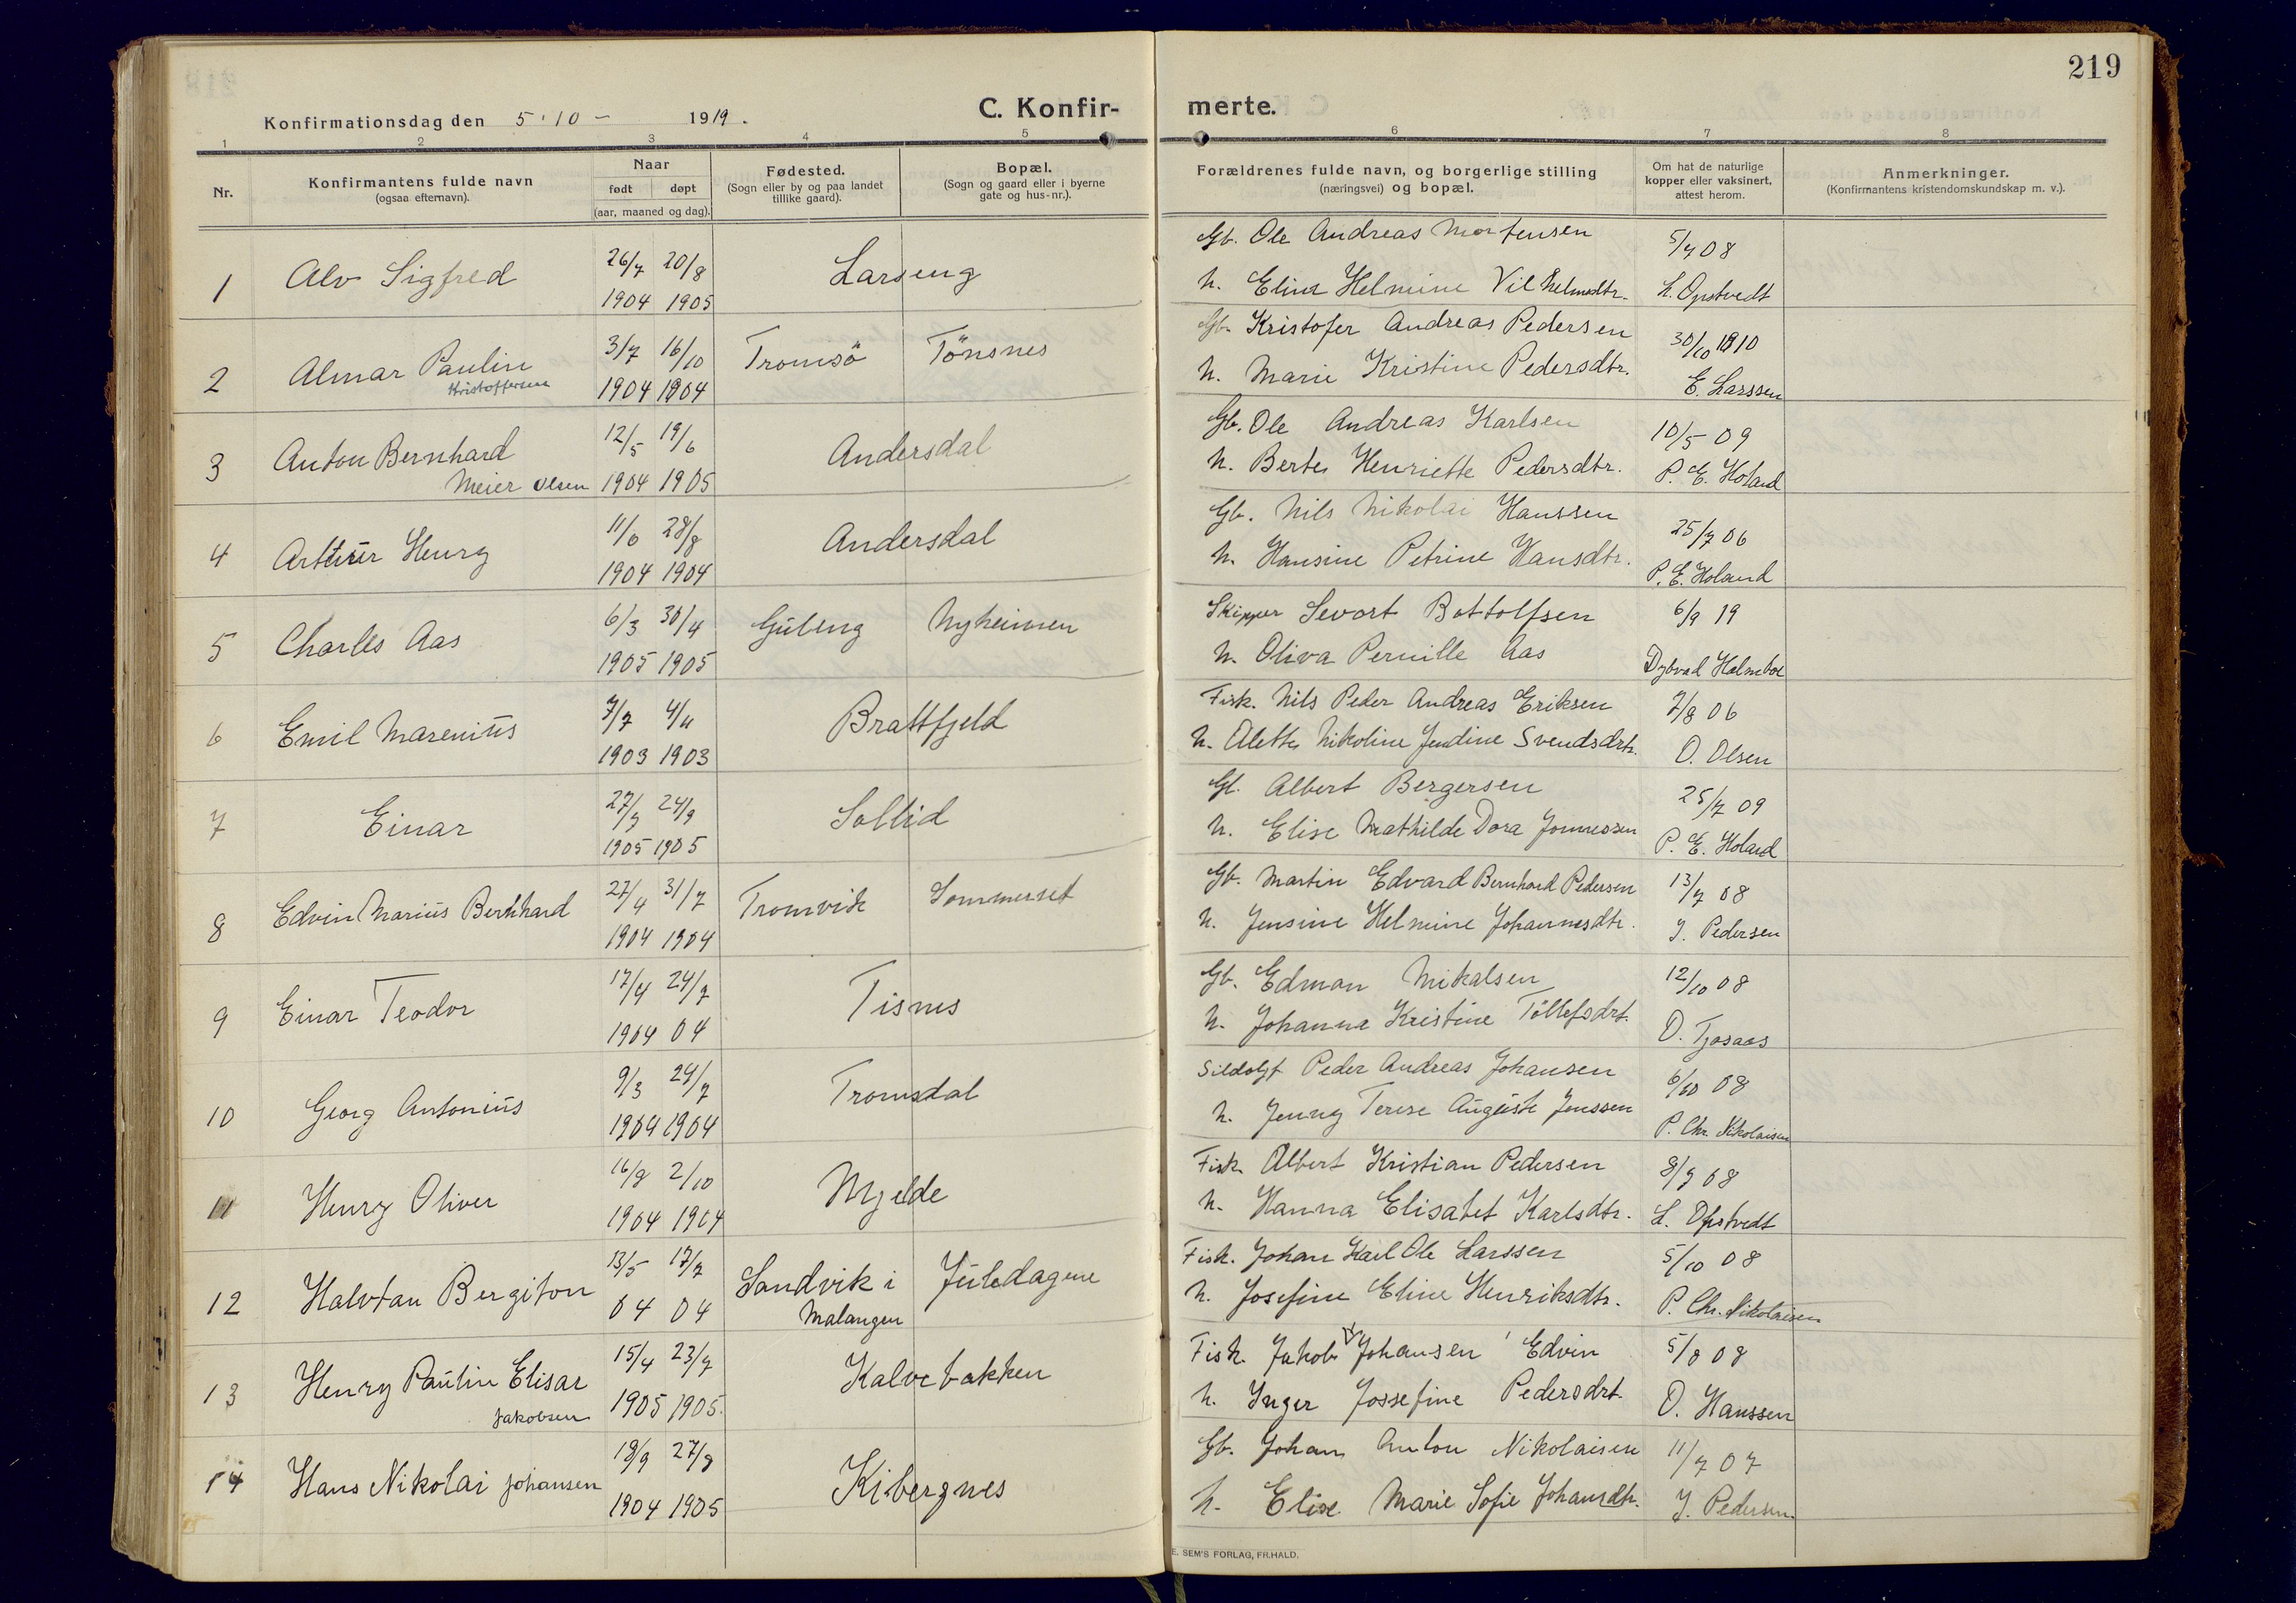 219
Konfirmationsdag den 5.10 - 1919.
C. Konfir-
merte.
1 2 3 4 5 6 7 8
Nr.
Konfirmantens fulde navn
(ogsaa efternavn).
Naar
født døpt
(aar, maaned og dag).
Fødested.
(Sogn eller by og paa landet
tillike gaard).
Bopæl.
(Sogn og gaard eller i byerne
gate og hus-nr.).
Forældrenes fulde navn, og borgerlige stilling
(næringsvei) og bopæl.
Om hat de naturlige
kopper eller vaksinert,
attest herom.
Anmerkninger.
(Konfirmantens kristendomskundskap m. v.).
1 Alv Sigfred 26/7 20/8 Larseng Gb. Ole Andreas Mortensen 5/7 08
1904 1905 h. Elina Helmine Vilhelmsdtr. L. Opstvedt
2 Almar Paulin 3/7 16/10 Tromsö Tönsnes Gb. Kristofer Andreas Pedersen 30/10 1910
Kristoffersen 1904 1904 h. Marie Kristine Pedersdtr. E. Larssen
3 Anton Bernhard 12/5 19/6 Andersdal Gb. Ole Andreas Karlsen 10/5 09
Meier Olsen 1904 1905 h. Berte Henriette Pedersdtr. P. E. Holand
4 Arthur Henry 11/6 28/8 Andersdal Gb. Nils Nikolai Hanssen 25/7 06
1904 1904 h. Hansine Petrine Hansdtr. P. E. Holand
5 Charles Aas 6/3 30/4 Guleng Nyheimen Skipper Sevart Bottolfsen 6/9 19
1905 1905 h. Oliva Pernille Aas Dybvad Holmboe
6 Emil Marenius 7/7 4/11 Brattfjeld Fisk. Nils Peder Andreas Eriksen 7/8 06
1903 1903 h. Alette Nikoline Jendine Svendsdtr. O. Olsen
7 Einar 27/3 24/9 Sollid Gb. Albert Bergersen 25/7 09
1905 1905 h. Elise Mathilde Dora Jonnessen P. E. Holand
8 Edvin Marius Bernhard 27/4 31/7 Tromvik Sommerset Gb. Martin Edvard Bernhard Pedersen 13/7 08
1904 1904 h. Jensine Helmine Johannesdtr. J. Pedersen
9 Einar Teodor 17/4 24/7 Tisnes Gb. Edman Mikalsen 12/10 08
1904 04 h. Johanna Kristine Tollefsdrt. O. Tjosaas
10 Georg Antonius 9/3 24/7 Tromsdal Peder Andreas Johansen 6/10 08
1904 1904 h. Jenny Terese Auguste Jenssen P. Chr. Nikolaisen
11 Henry Oliver 16/8 2/10 Mjelde Fisk. Albert Kristian Pedersen 8/9 08
1904 1904 h. Hanna Elisabet Karlsdtr. L. Opstvedt
12 Halvtan Bergiton 13/5 17/7 Sandvik i Juledagene Fisk. Johan Karl Ole Larssen 5/10 08
04 04 Malangen h. Josefine Eline Henriksdtr. P. Chr. Nikolaisen
13 Henry Paulin Elisar 15/4 23/7 Kalvebakken Fisk. Jakob Johansen Edvin 5/8 08
Jakobsen 1905 1905. h. Inger Jossefine Pedersdrt. O. Hanssen
14 Hans Nikolai Johansen 18/9 27/8 Kibergnes Gb. Johan Anton Nikolaisen 11/7 07
1904 1905 h. Elise Marie Sofie Johansdtr. J. Pedersen
E. SEM'S FORLAG, FR.HALD.